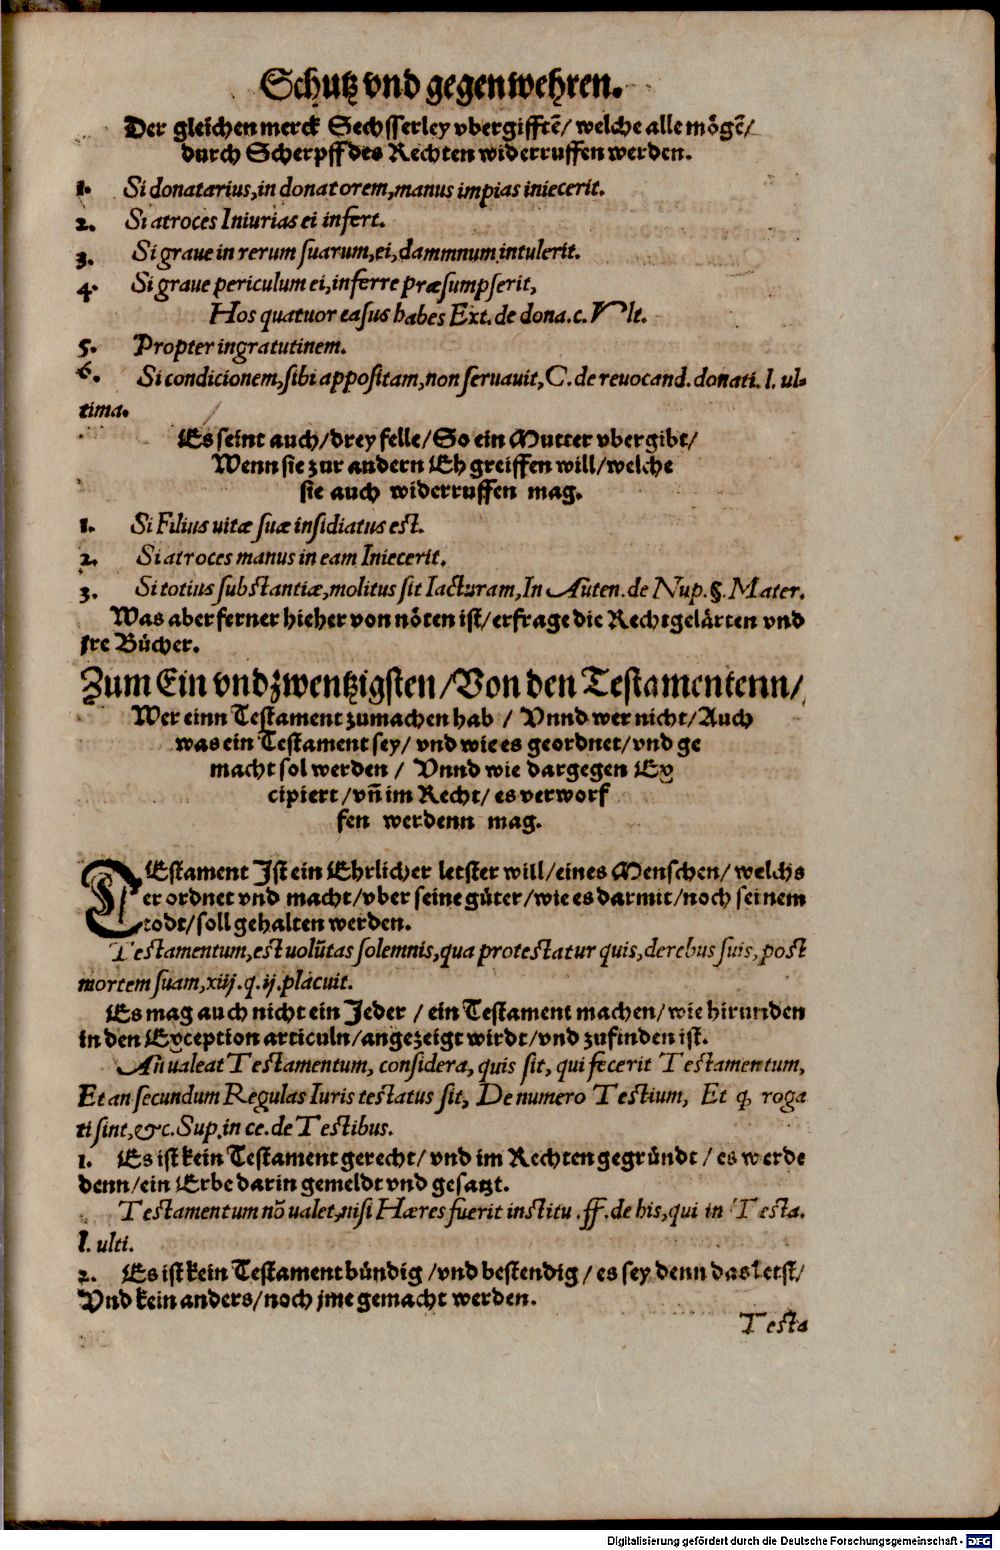 Schutz vnd gegenwehren.
Der gleichen merck Sechsserley vbergifftẽ/ welche alle mögẽ/
durch Scherpff des Rechten widerruffen werden.
1. Si donatarius, in donatorem, manus impias iniecerit.
2. Si atroces Iniurias ei infert.
3. Si graue in rerum suarum, ei, dammnum intulerit.
4. Si graue periculum ei, inferre præsumpserit,
Hos quatuor casus habes Ext. de dona. c. Vlt.
5. Propter ingratutinem.
6. Si condicionem, sibi appositam, non seruauit, C. de reuocand. donati. l. ul-
tima.
Es seint auch/ drey felle/ So ein Mutter vbergibt/
Wenn sie zur andern Eh greiffen will/ welche
sie auch widerruffen mag.
1. Si Filius uitæ suæ insidiatus est.
2. Si atroces manus in eam Iniecerit.
3. Si totius substantiæ, molitus sit Iacturam, In Auten. de Nup. §. Mater.
Was aber ferner hieher von nöten ist/ erfrage die Rechtgelärten vnd
jre Bücher.
Zum Ein vnd zwentzigsten/ Von den Testamentenn/
Wer einn Testament zumachen hab / Vnnd wer nicht/ Auch
was ein Testament sey/ vnd wie es geordnet/ vnd ge
macht sol werden / Vnnd wie dargegen Ex
cipiert/ vñ im Recht/ es verworf
fen werdenn mag.
TEstament Jst ein Ehrlicher letster will/ eines Menschen/ welchs
er ordnet vnd macht/ vber seine güter/ wie es darmit/ noch seinem
todt/ soll gehalten werden.
Testamentum, est uolũtas solemnis, qua protestatur quis, de rebus suis, post
mortem suam, xiij. q. ij. placuit.
Es mag auch nicht ein Jeder / ein Testament machen/ wie hirunden
in den Exception articuln/ angezeigt wirdt/ vnd zufinden ist.
Añ ualeat Testamentum, considera, quis sit, qui fecerit Testamentum,
Et an secundum Regulas Iuris testatus sit, De numero Testium, Et ꝗ roga
ti sint, &c. Sup. in ce. de Testibus.
1. Es ist kein Testament gerecht/ vnd im Rechten gegründt / es werde
denn/ ein Erbe darin gemeldt vnd gesatzt.
Testamentum nõ ualet, nisi Hæres fuerit institu. ff. de his, qui in Testa.
l. ulti.
2. Es ist kein Testament bündig / vnd bestendig / es sey denn das letst/
Vnd kein anders/ noch jme gemacht werden.
Testa
Digitalisierung gefördert durch die Deutsche Forschungsgemeinschaft - DFG